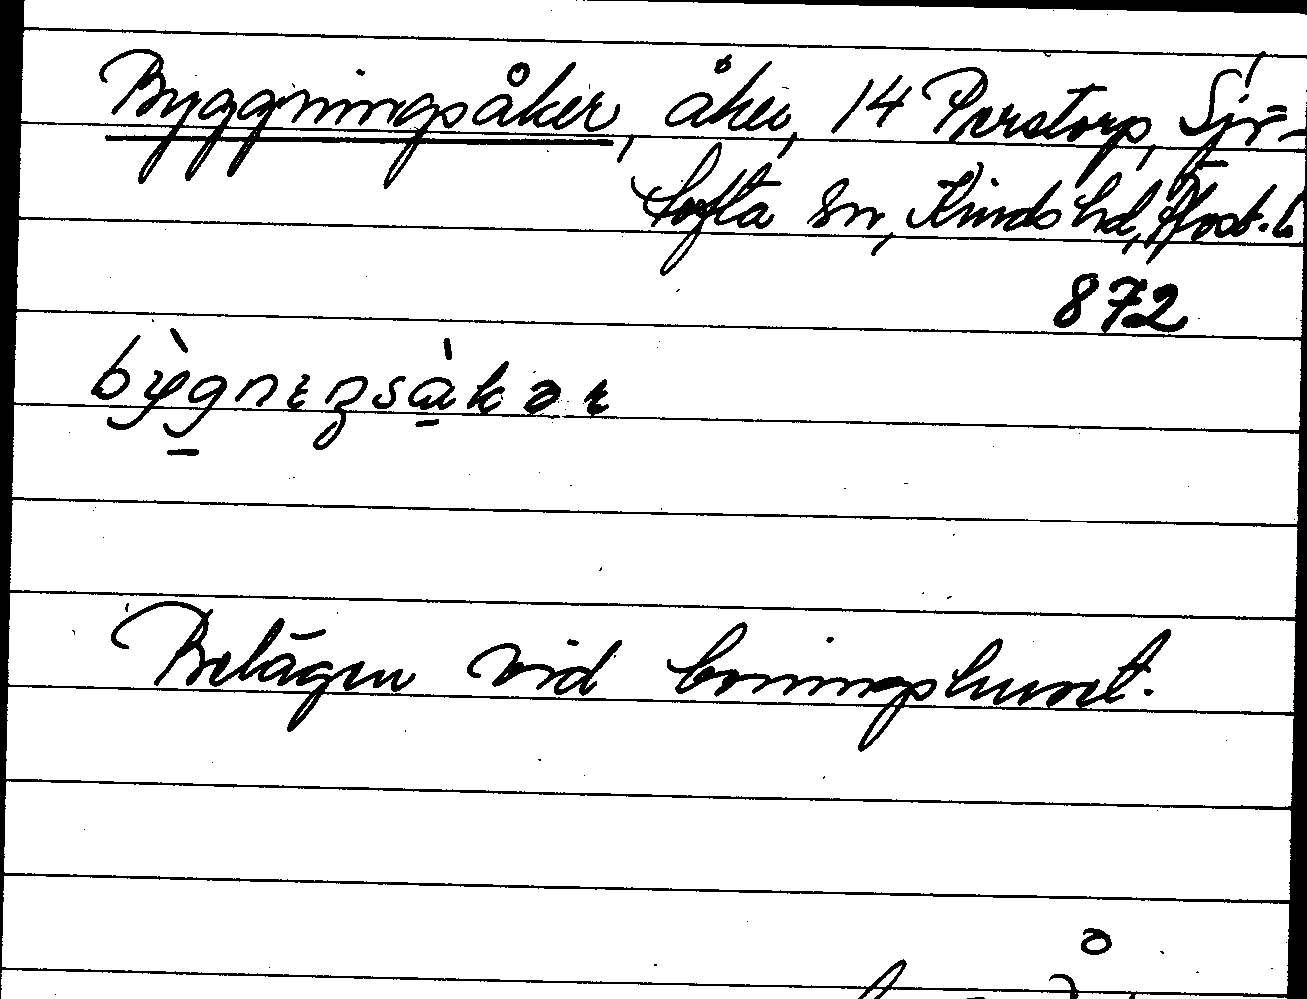 Byggningsåker, åker, 14 Perstorp, Sju-
tofta sn, Kinds hd, Älvsb. l.
872
bỳgnɪŋsàkər
Belägen vid boningshuset.